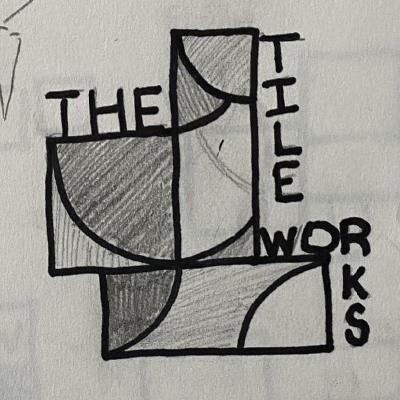 THE
TILE
WORKS